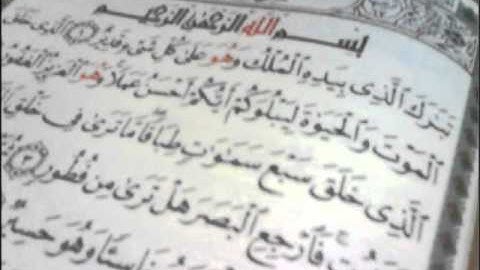 بِسْمِ اللَّهِ الرَّحْمَٰنِ الرَّحِيمِ
تَبَٰرَكَ ٱلَّذِى بِيَدِهِ ٱلْمُلْكُ وَهُوَ عَلَىٰ كُلِّ شَىْءٍ قَدِيرٌ ١ ٱلَّذِى خَلَقَ
ٱلْمَوْتَ وَٱلْحَيَوٰةَ لِيَبْلُوَكُمْ أَيُّكُمْ أَحْسَنُ عَمَلًا وَهُوَ ٱلْعَزِيزُ ٱلْغَفُورُ
ٱلَّذِى خَلَقَ سَبْعَ سَمَٰوَٰتٍ طِبَاقًا مَّا تَرَىٰ فِى خَلْقِ
فَٱرْجِعِ ٱلْبَصَرَ هَلْ تَرَىٰ مِن فُطُورٍ ٣
خَاسِئًا وَهُوَ حَسِيرٌ